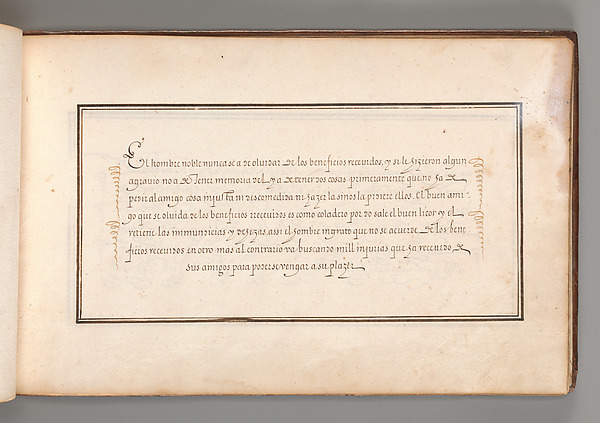 El hombre noble nunca se a de olvidar de los beneficios recevidos, y si le hizieron algun
agravio no a de Tener memoria del, y a de tener dos cosas. primeramente que no ha de
pedir al amigo cosa injusta ni descomedida ni hazer la si nos la pidiere ellos. El buen ami-
go que se olvida de los beneficios rrecevidos es como coladero por do sale el buen licor y el
retiene las immundicias y las hezas, assi el hombre ingrato que no se acuerde de los bene
ficios recevidos en otro mas al contrario va buscando mill injurias que ha recevido de
sus amigos para poderse vengar a su plazer